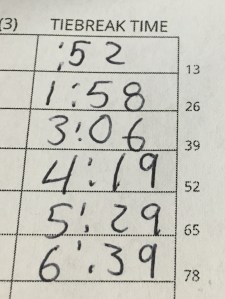 (3) TIEBREAK TIME
:52 13
1:58 26
3:06 39
4:19 52
5:29 65
6:39 78